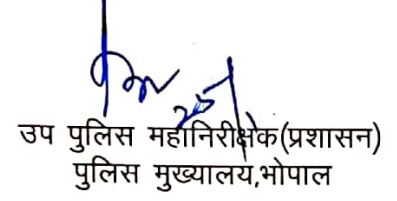 उप पुलिस महानिरीक्षक(प्रशासन)
पुलिस मुख्यालय,भोपाल